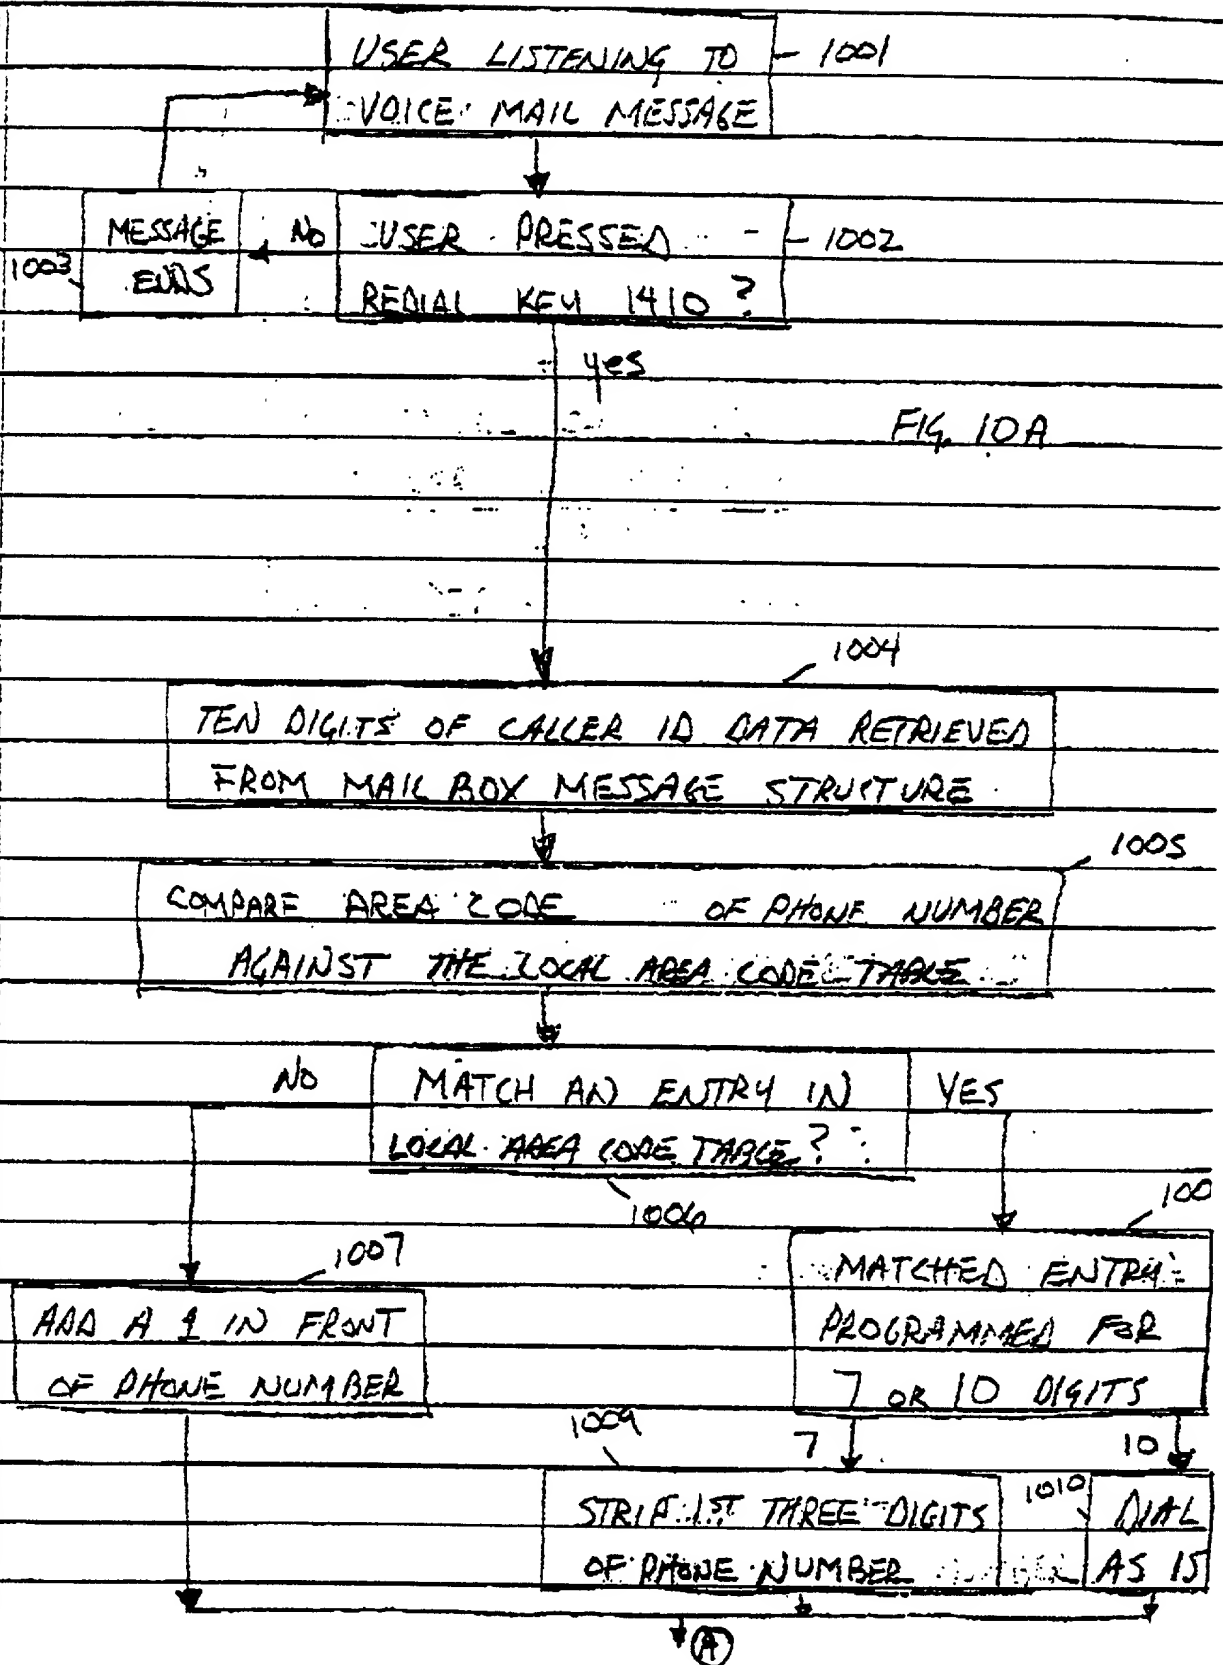 USER LISTENING TO
VOICE MAIL MESSAGE
1001
MESSAGE
ENDS
1003
NO
USER PRESSED
REDIAL KEY 1410 ?
1002
yes
FIG. 10A
1004
TEN DIGITS OF CALLER ID DATA RETRIEVED
FROM MAIL BOX MESSAGE STRUCTURE
1005
COMPARE AREA CODE OF PHONE NUMBER
AGAINST THE LOCAL AREA CODE TABLE
NO
MATCH AN ENTRY IN
LOCAL AREA CODE TABLE?
YES
1006
100
1007
ADD A 1 IN FRONT
OF PHONE NUMBER
MATCHED ENTRY
PROGRAMMED FOR
7 OR 10 DIGITS
1009
7
10
STRIP 1ST THREE DIGITS
OF PHONE NUMBER
1010
DIAL
AS IS
A